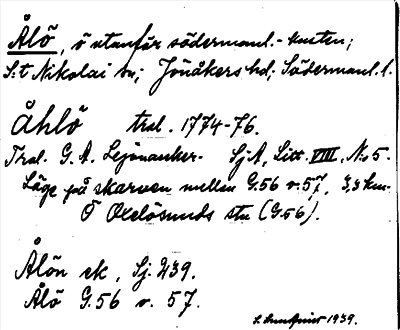 Ålö, ö utanför södermanl.-kusten;
S:t Nikolai sn; Jönåkers hd; Södermanl. l.
Åhlö tral. 1774-76.
Tral. G. A. Lejonanker- SjA, Litt. VIII, N:o 5.
Läge på skarven mellen G.56 o. 57, 3,3 km
Ö Oxelösunds stn (G 56).
Ålön ek, Sj. 239.
Ålö G.56 o. 57.
1939.